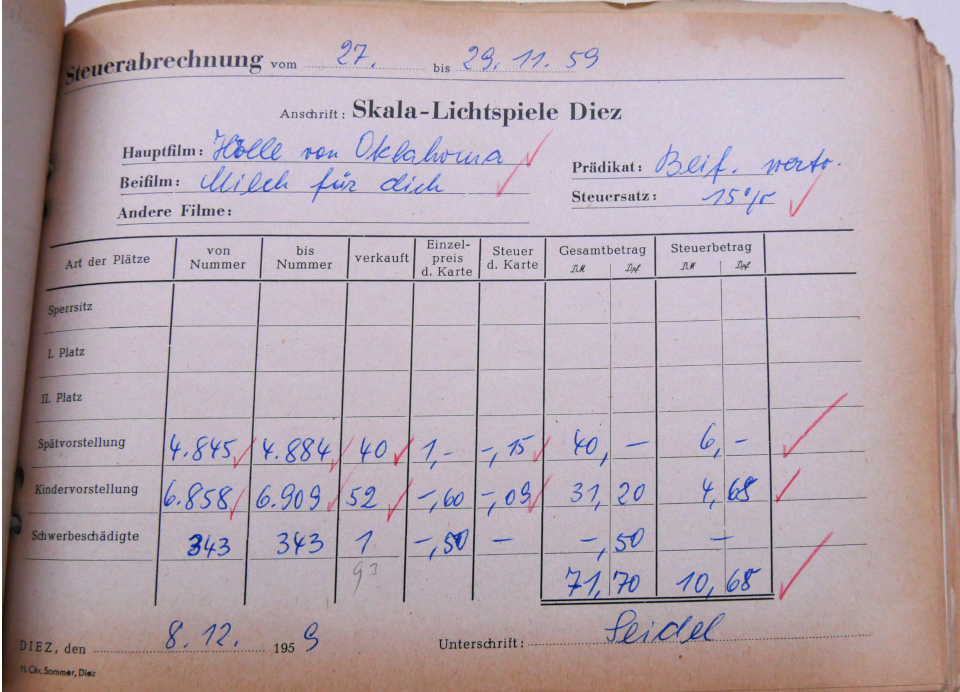 Steuerabrechnung vom 27. bis 29. 11. 59
Anschrift: Skala-Lichtspiele Diez
Hauptfilm: Hölle von Oklahoma
Prädikat: Beif. wertv.
Beifilm: Milch für dich
Steuersatz: 15%
Andere Filme:
Art der Plätze von Nummer bis Nummer verkauft Einzel-preis d. Karte Steuer d. Karte Gesamtbetrag DM Dpf Steuerbetrag DM Dpf
Sperrsitz
I. Platz
II. Platz
Spätvorstellung 4.845 4.884 40 1,- -,15 40,- 6,-
Kindervorstellung 6.858 6.909 52 -,60 -,09 31,20 4,68
Schwerbeschädigte 343 343 1 -,50 - -,50 -
93 71,70 10,68
DIEZ, den 8. 12. 1959 Unterschrift: Seidel
H. Chr. Sommer, Diez